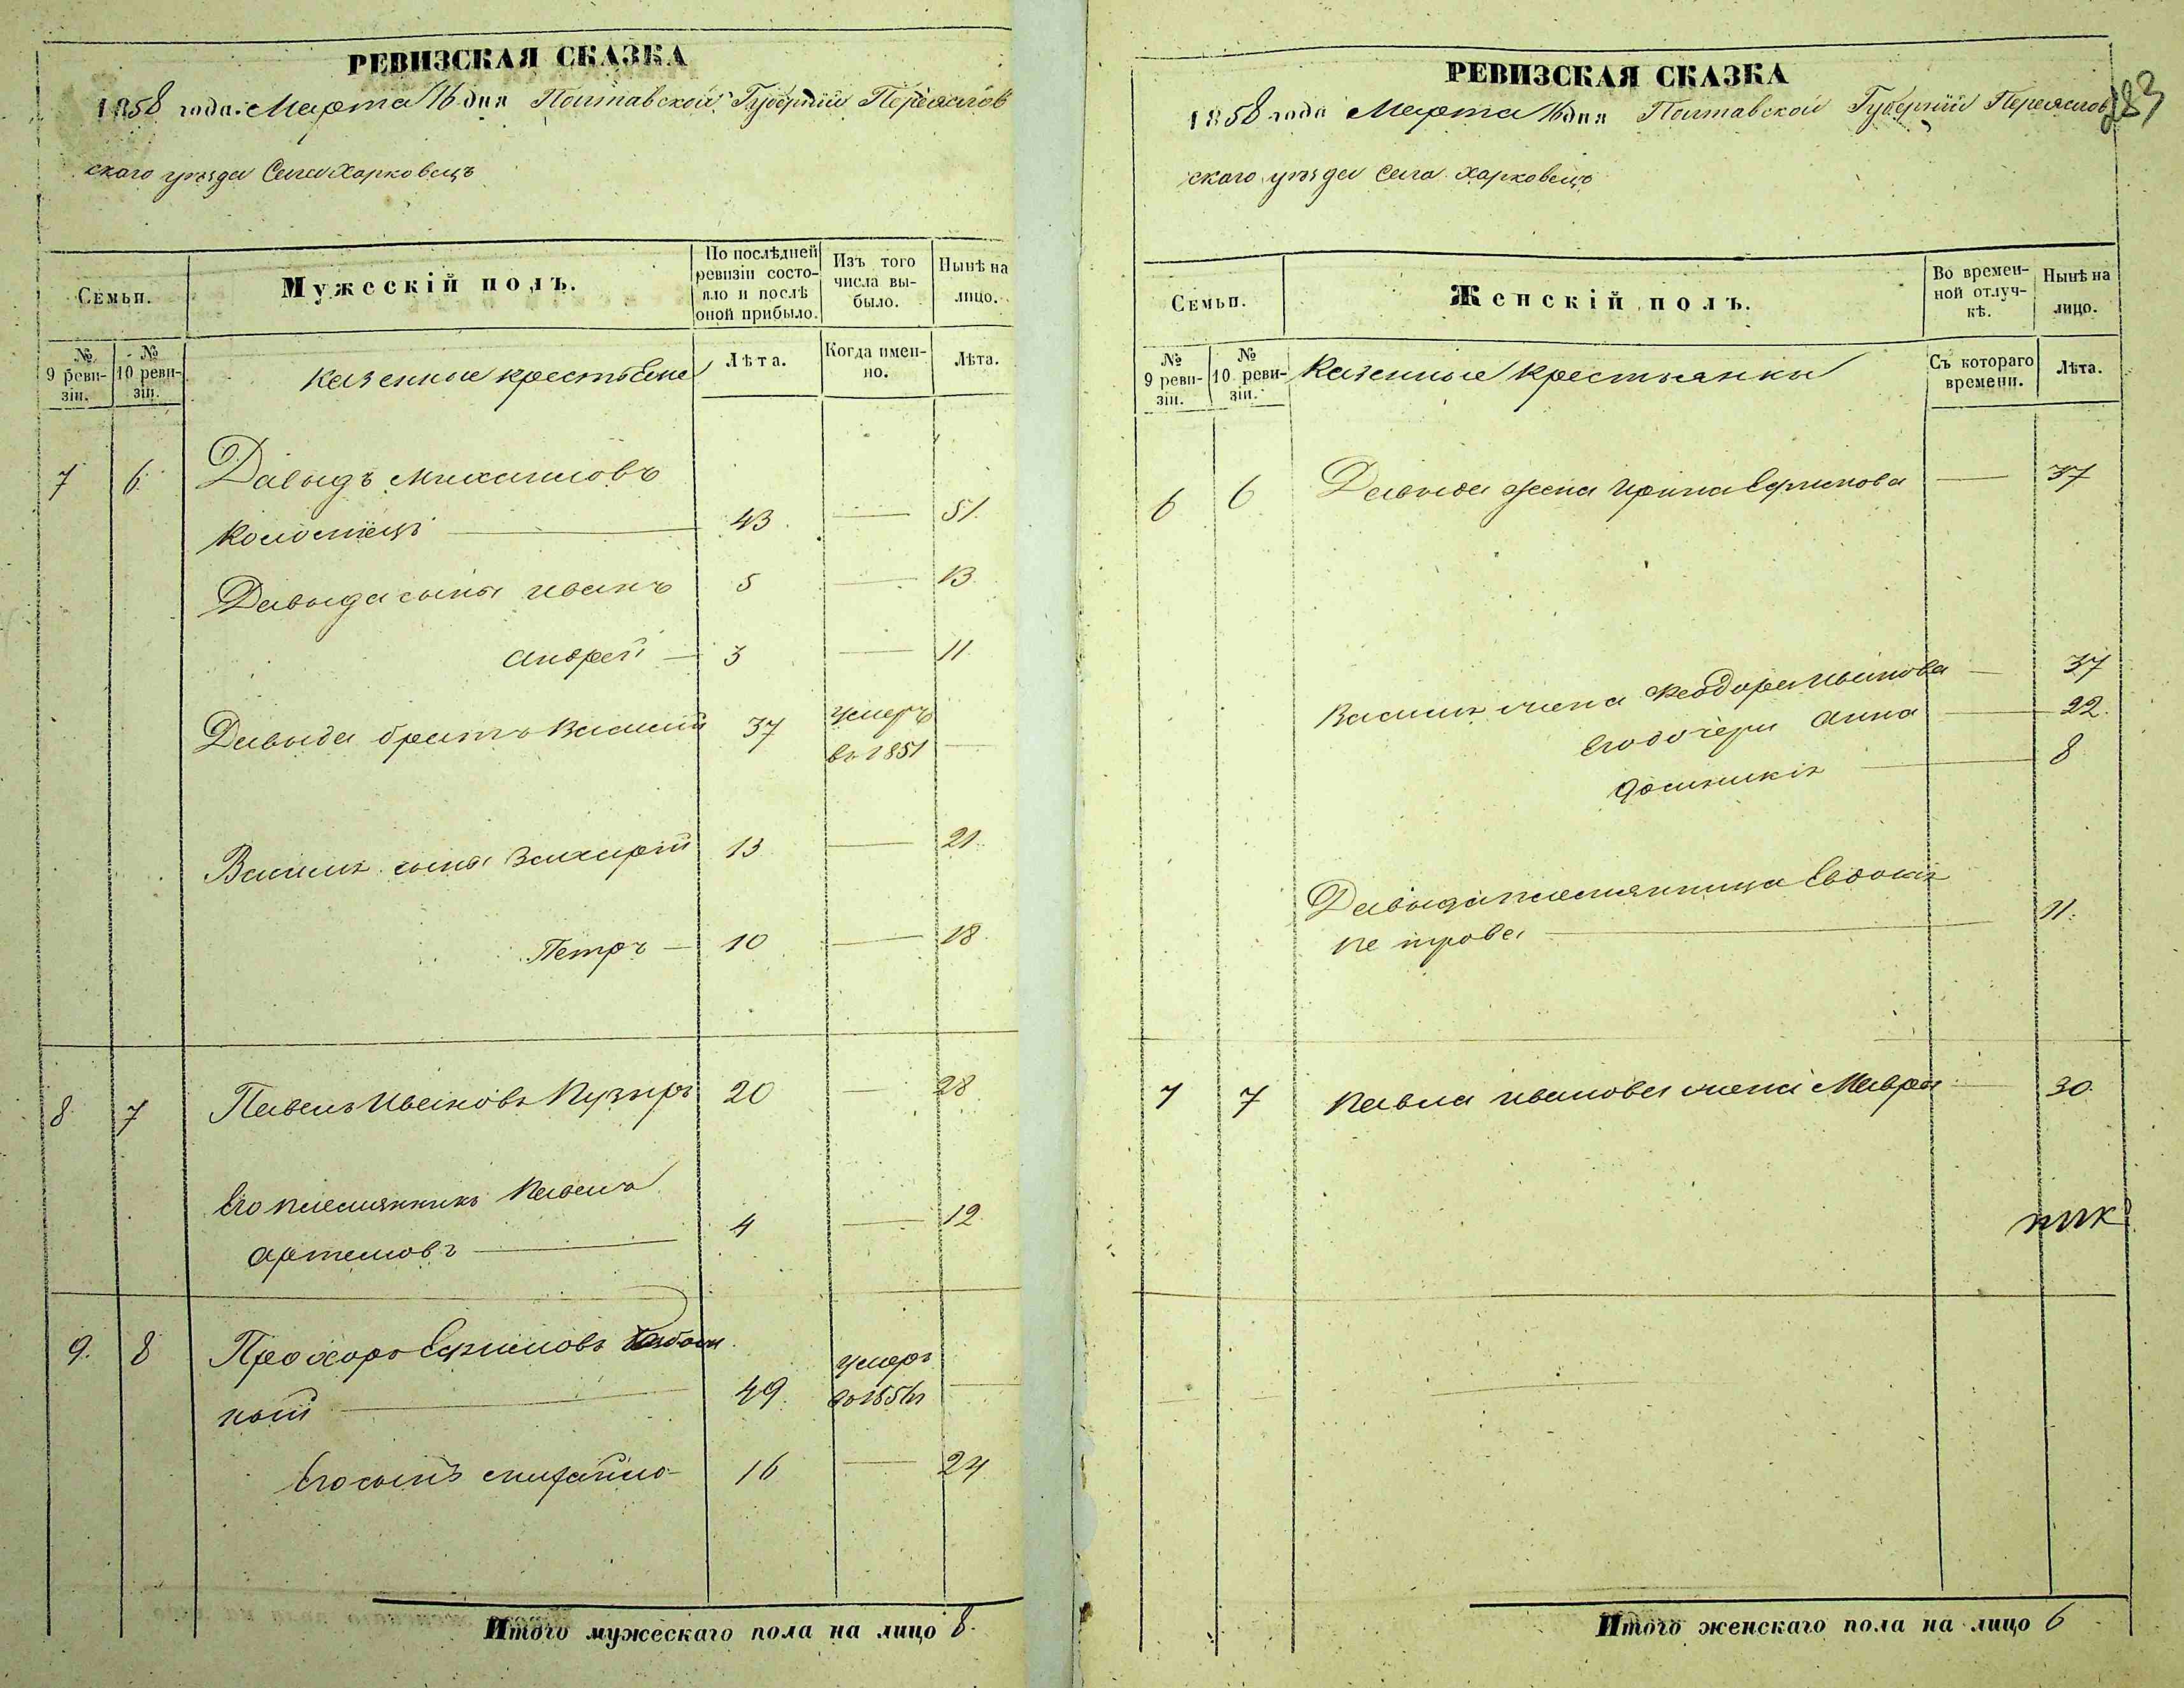 РЕВИЗСКАЯ СКАЗКА
1858 года Марта 16 дня Полтавской Губерніи Переяслов
скаго уѣзда Села Харковецъ
Семьи.
Мужескій полъ.
По послѣдней ревизіи состо-
яло и послѣ
оной прибыло.
Изъ того
числа вы-
было.
Нынѣ на
лицо.
№
9 реви-
зіи.
№
10 реви-
зіи.
казенные крестьяне
Лѣта.
Когда имен-
но.
Лѣта.
7 6 Давыдъ Михаиловъ
Коломіецъ — 43 — 51
Давыда сыны Иванъ 5 — 13
Андрей — 3 — 11
Давыда братъ Василій 37 умеръ
въ 1851 —
Василя сыны Захарій 13 — 21
Петръ — 10 — 18
8 7 Павелъ Ивановъ Пузырь 20 — 28
Его племянникъ Павелъ
Артемовъ — 4 — 12
9. 8 Прохоръ Ефимовъ
ной — 49 умеръ
—
Его сынъ Михайло 16 — 24
Итого мужескаго пола на лицо 8.
РЕВИЗСКАЯ СКАЗКА
183
1858 года Марта 16 дня Полтавской Губерніи Переяслов
скаго уѣзда Села Харковецъ
Семьи.
Женскій полъ.
Во времен-
ной отлуч-
кѣ.
Нынѣ на
лицо.
№
9 реви-
зіи.
№
10 реви-
зіи.
Казенные крестьянки
Съ котораго
времени.
Лѣта.
6 6 Давыда жена Ирина Ефимова — 37
Василя жена Феодора Иванова — 37
его дочери Анна — 22
— 8
Давыда племянница Евдокія
Петрова — 11
7 7 Павла Иванова жена Мавра — 30
Итого женскаго пола на лицо 6